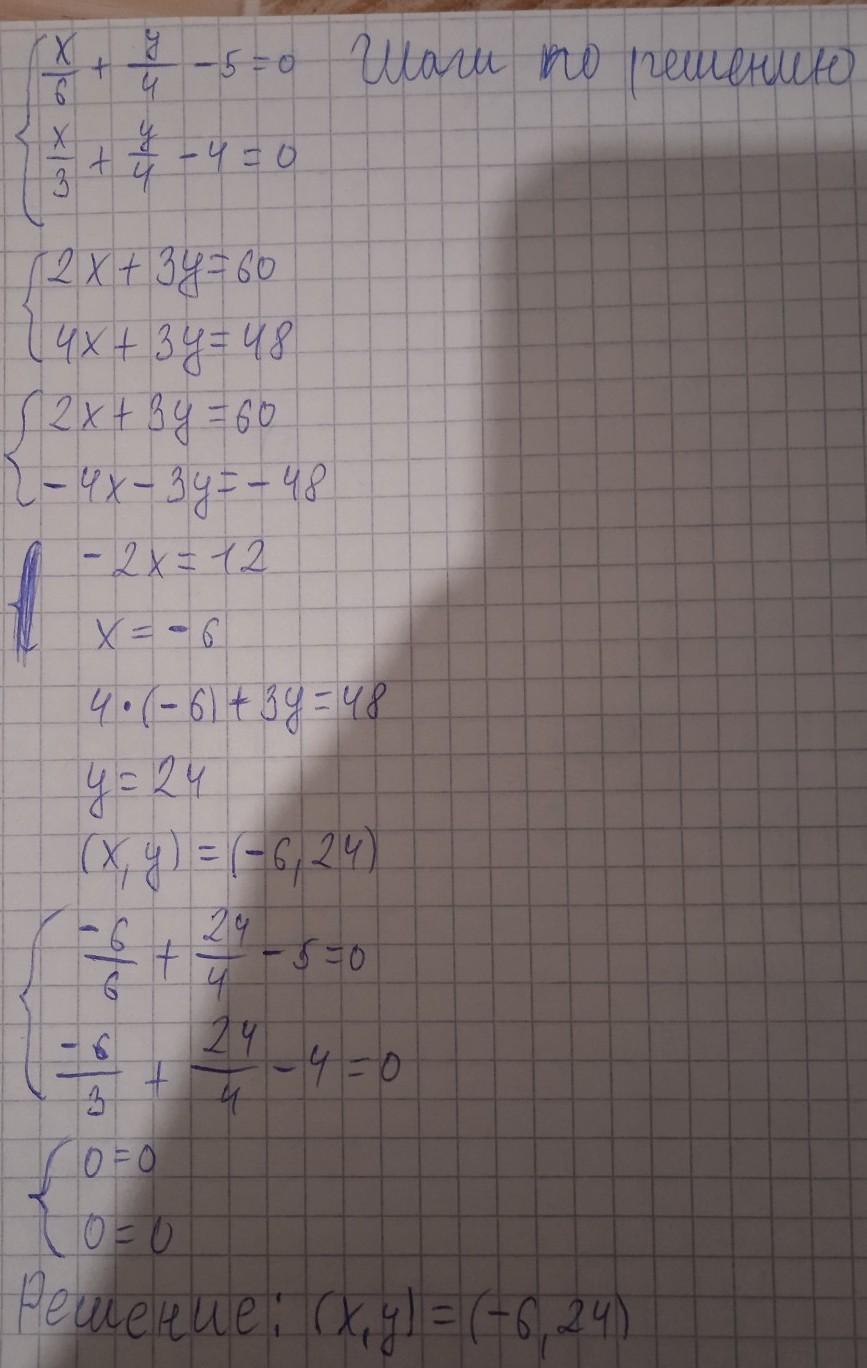 x/6 + y/4 - 5 = 0 Шаги по решению
x/3 + y/4 - 4 = 0
2x + 3y = 60
4x + 3y = 48
2x + 3y = 60
-4x - 3y = -48
-2x = 12
x = -6
4·(-6) + 3y = 48
y = 24
(x, y) = (-6, 24)
-6/6 + 24/4 - 5 = 0
-6/3 + 24/4 - 4 = 0
0 = 0
0 = 0
Решение: (x, y) = (-6, 24)